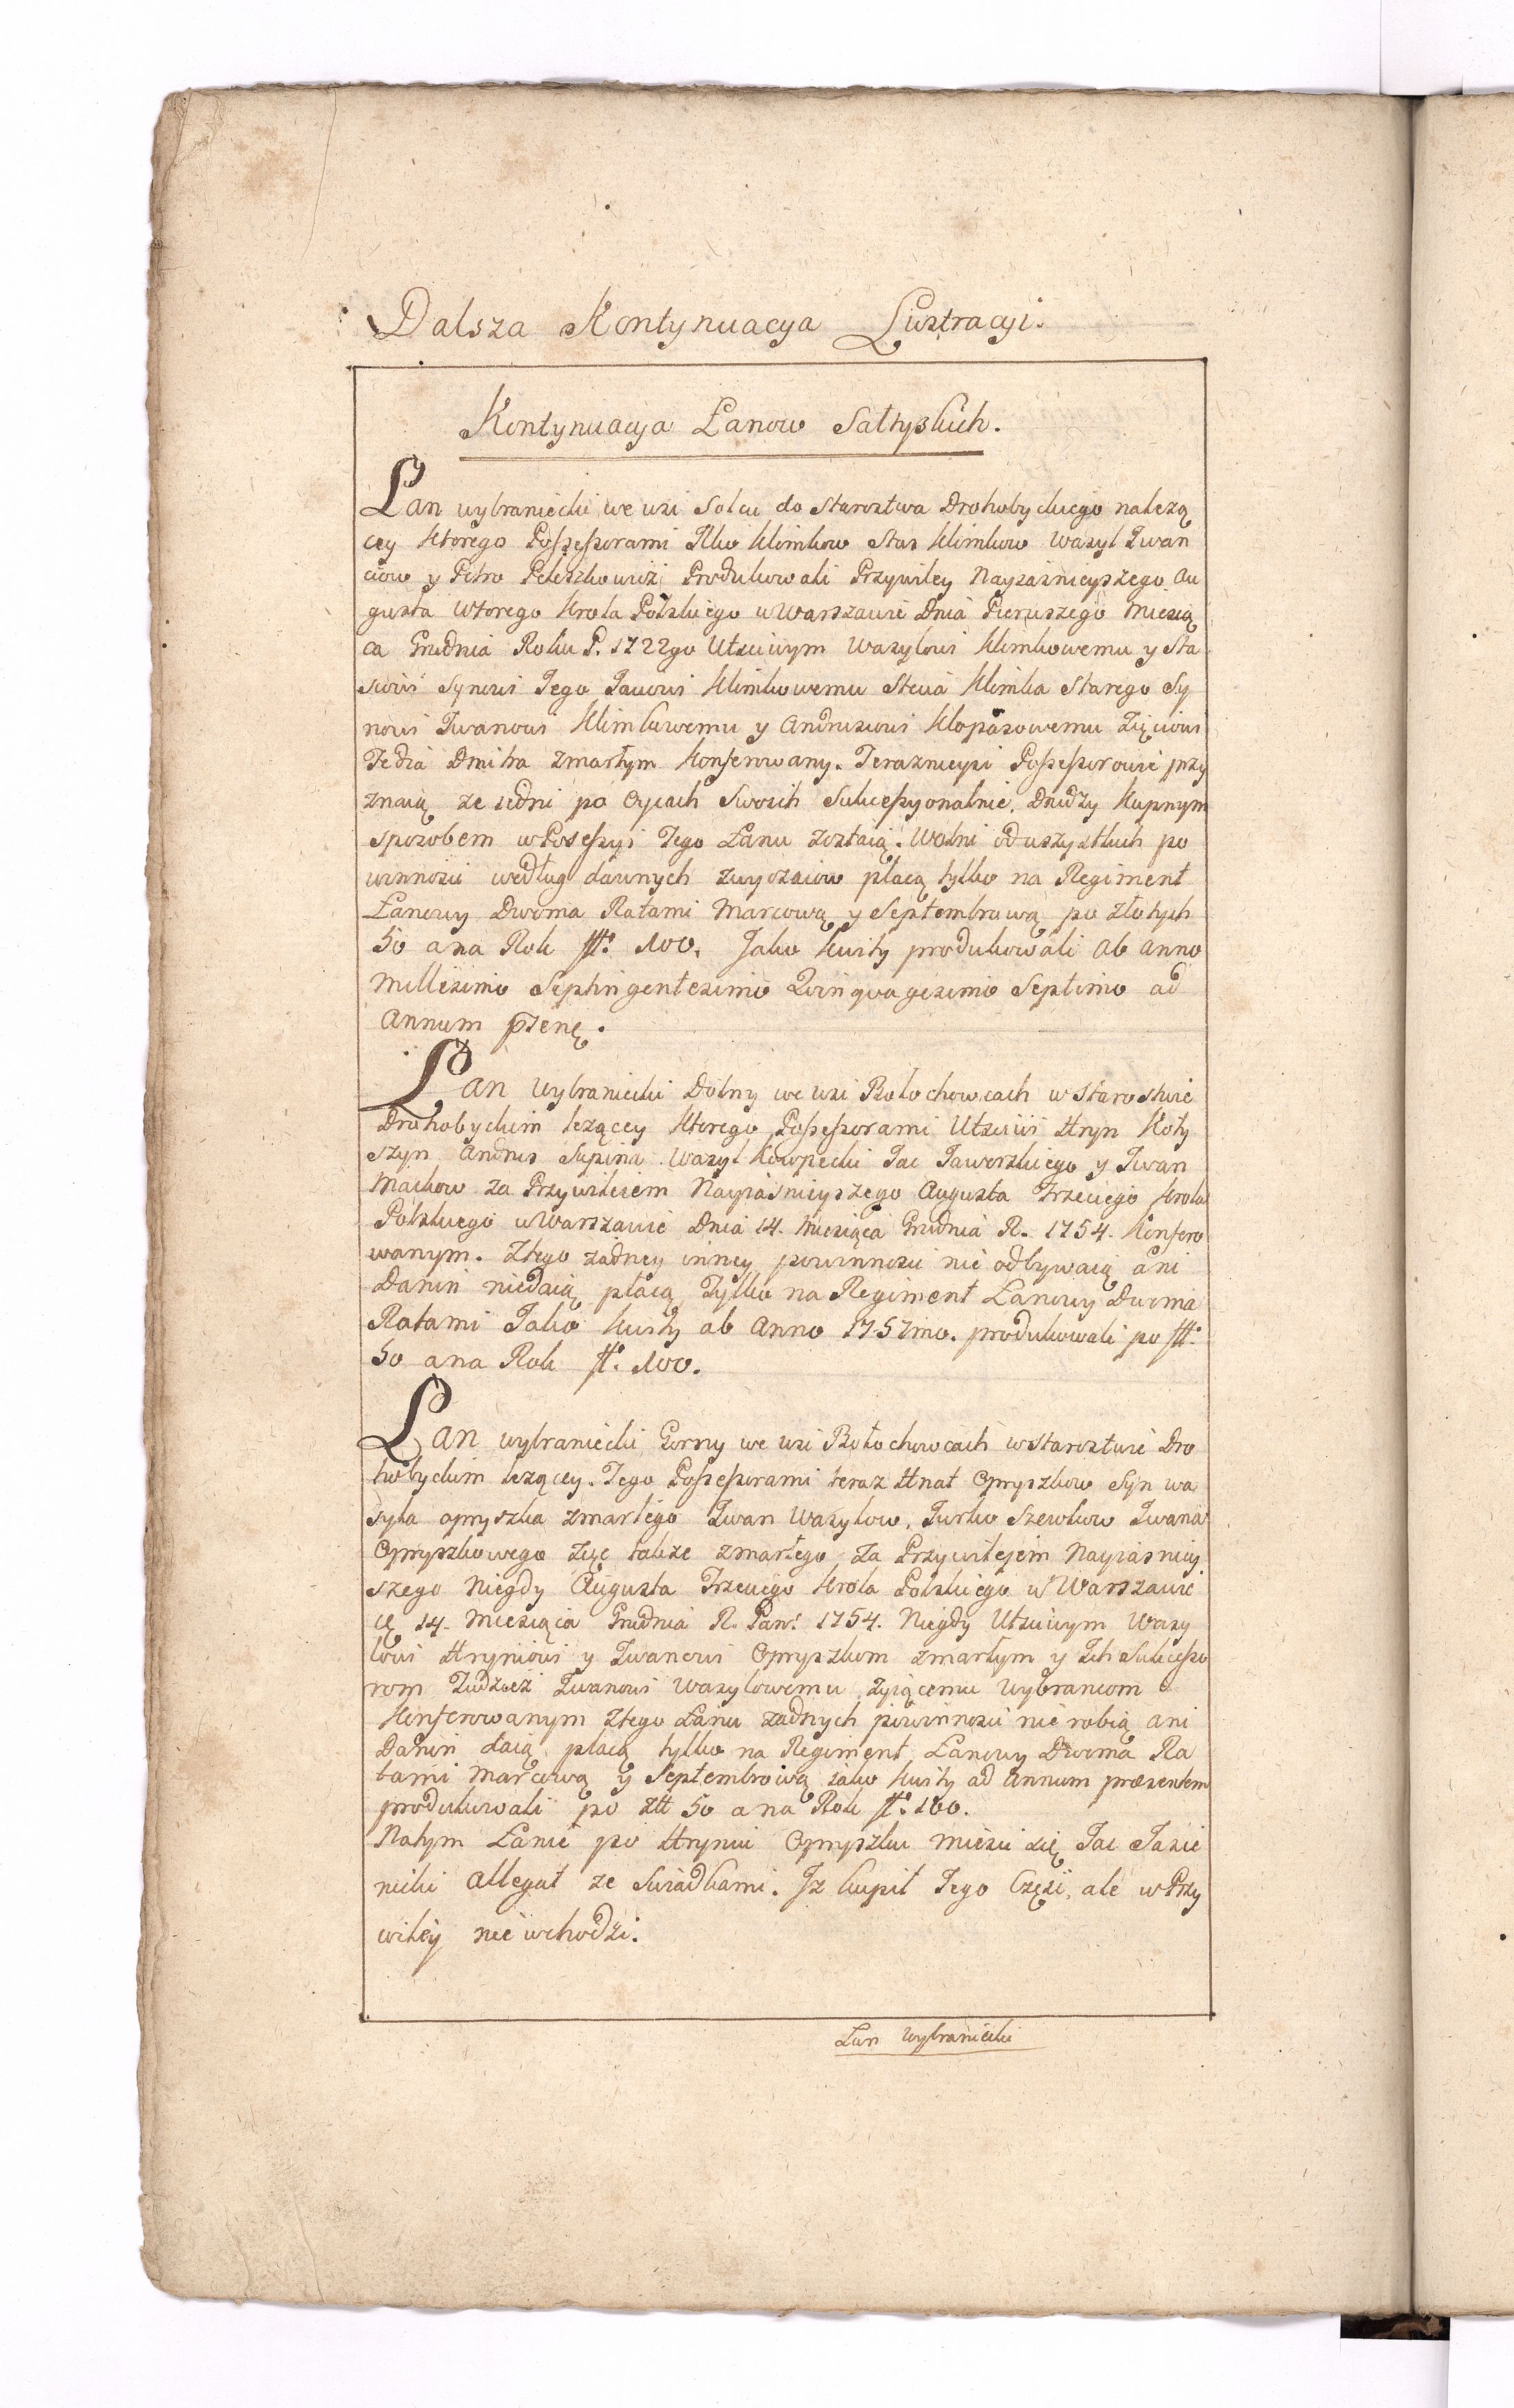 Dalsza Kontynuacya Lustracyi.
Kontynuacya Łanow Sałtyskich.
Łan wybraniecki we wsi Solcu do Starostwa Drohobyckiego należą
cey ktorego Possessorami Ilko Klimkow Stas Klimkow Wasyl Iwan
ciow y Petro Produkowali Przywiley Nayiasnieyszego Au
gusta Wtorego Krola Polskiego w Warszawie Dnia Pierwszego Miesią
ca Grudnia Roku P. 1722go Utsciwym Wasylowi Klimkowemu y Sta
siowi Synowi Jego Jacowi Klimkowemu Stecia Klimka Starego Sy
nowi Iwanowi Klimkowemu y Andrusiowi Klopasowemu Zięciowi
Fedia Dmitra zmarłym konferowany. Teraznieysi Possessorowie przy
znaią ze iedni po Oycach Swoich Sukcessyonalnie, Drudzy Kupnym
sposobem w Possessyi Tego Łanu zostaią. Wolni od wszystkich po
winnosci według dawnych zwyczaiow płacą tylko na Regiment
Łanowy Dwoma Ratami Marcową y Septembrową po złotych
50 a na Rok fl. 100. Jako kwity produkowali Ab Anno
Millesimo Septingentesimo Qvinqvagesimo Septimo ad
Annum psenę.
Łan Wybraniecki Dolny we wsi Bołochowcach w Starostwie
Drohobyckim leżącey ktorego Possessorami Utsciwi Hryn Koty
szyn Andrus Supina Wasyl Jac Jaworskiego y Iwan
Mackow za Przywileiem Nayiasnieyszego Augusta Trzeciego Krola
Polskiego w Warszawie Dnia 14. Miesiąca Grudnia R. 1754. Konfero
wanym. Ztego zadney inney powinnosci nie odbywaią ani
Danin niedaią płacą Tylko na Regiment Łanowy Dwoma
Ratami Jako kwity ab Anno 1757mo. produkowali po fl.
50 a na Rok fl. 100.
Łan wybraniecki Gorny we wsi Bołochowcach w Starostwie Dro
hobyckim leżącey. Tego Possessorami teraz Hnat Opryszkow Syn Wa
syla opryszka zmarłego Iwan Wasylow, Jurko Szewkow Iwana
Opryszkowego Zięc także zmarłego, za Przywilejem Nayiasniey
szego Niegdy Augusta Trzeciego Krola Polskiego w Warszawie
14. Miesiąca Grudnia R. Pan: 1754. Niegdy Utsciwym Wasy
lowi Hryniowi y Iwanowi Opryszkom zmarłym y Ich Sukcesso
rom Tudziez Iwanowi Wasylowemu żyiącemu Wybrancom
Konferowanym Ztego Łanu żadnych powinnosci nie robią ani
Danin daią płacą tylko na Regiment Łanowy Dwoma Ra
tami Marcową y Septembrową iako kwity ad Annum præsentem
produkowali po zł 50 a na Rok fl. 100.
Natym Łanie po Hryniu Opryszku miesci się Jac Jasie
nicki Allegat ze Swiadkami. Iz kupił Tego Częsć, ale w Przy
wiley nie wchodzi.
Łan Wybraniecki